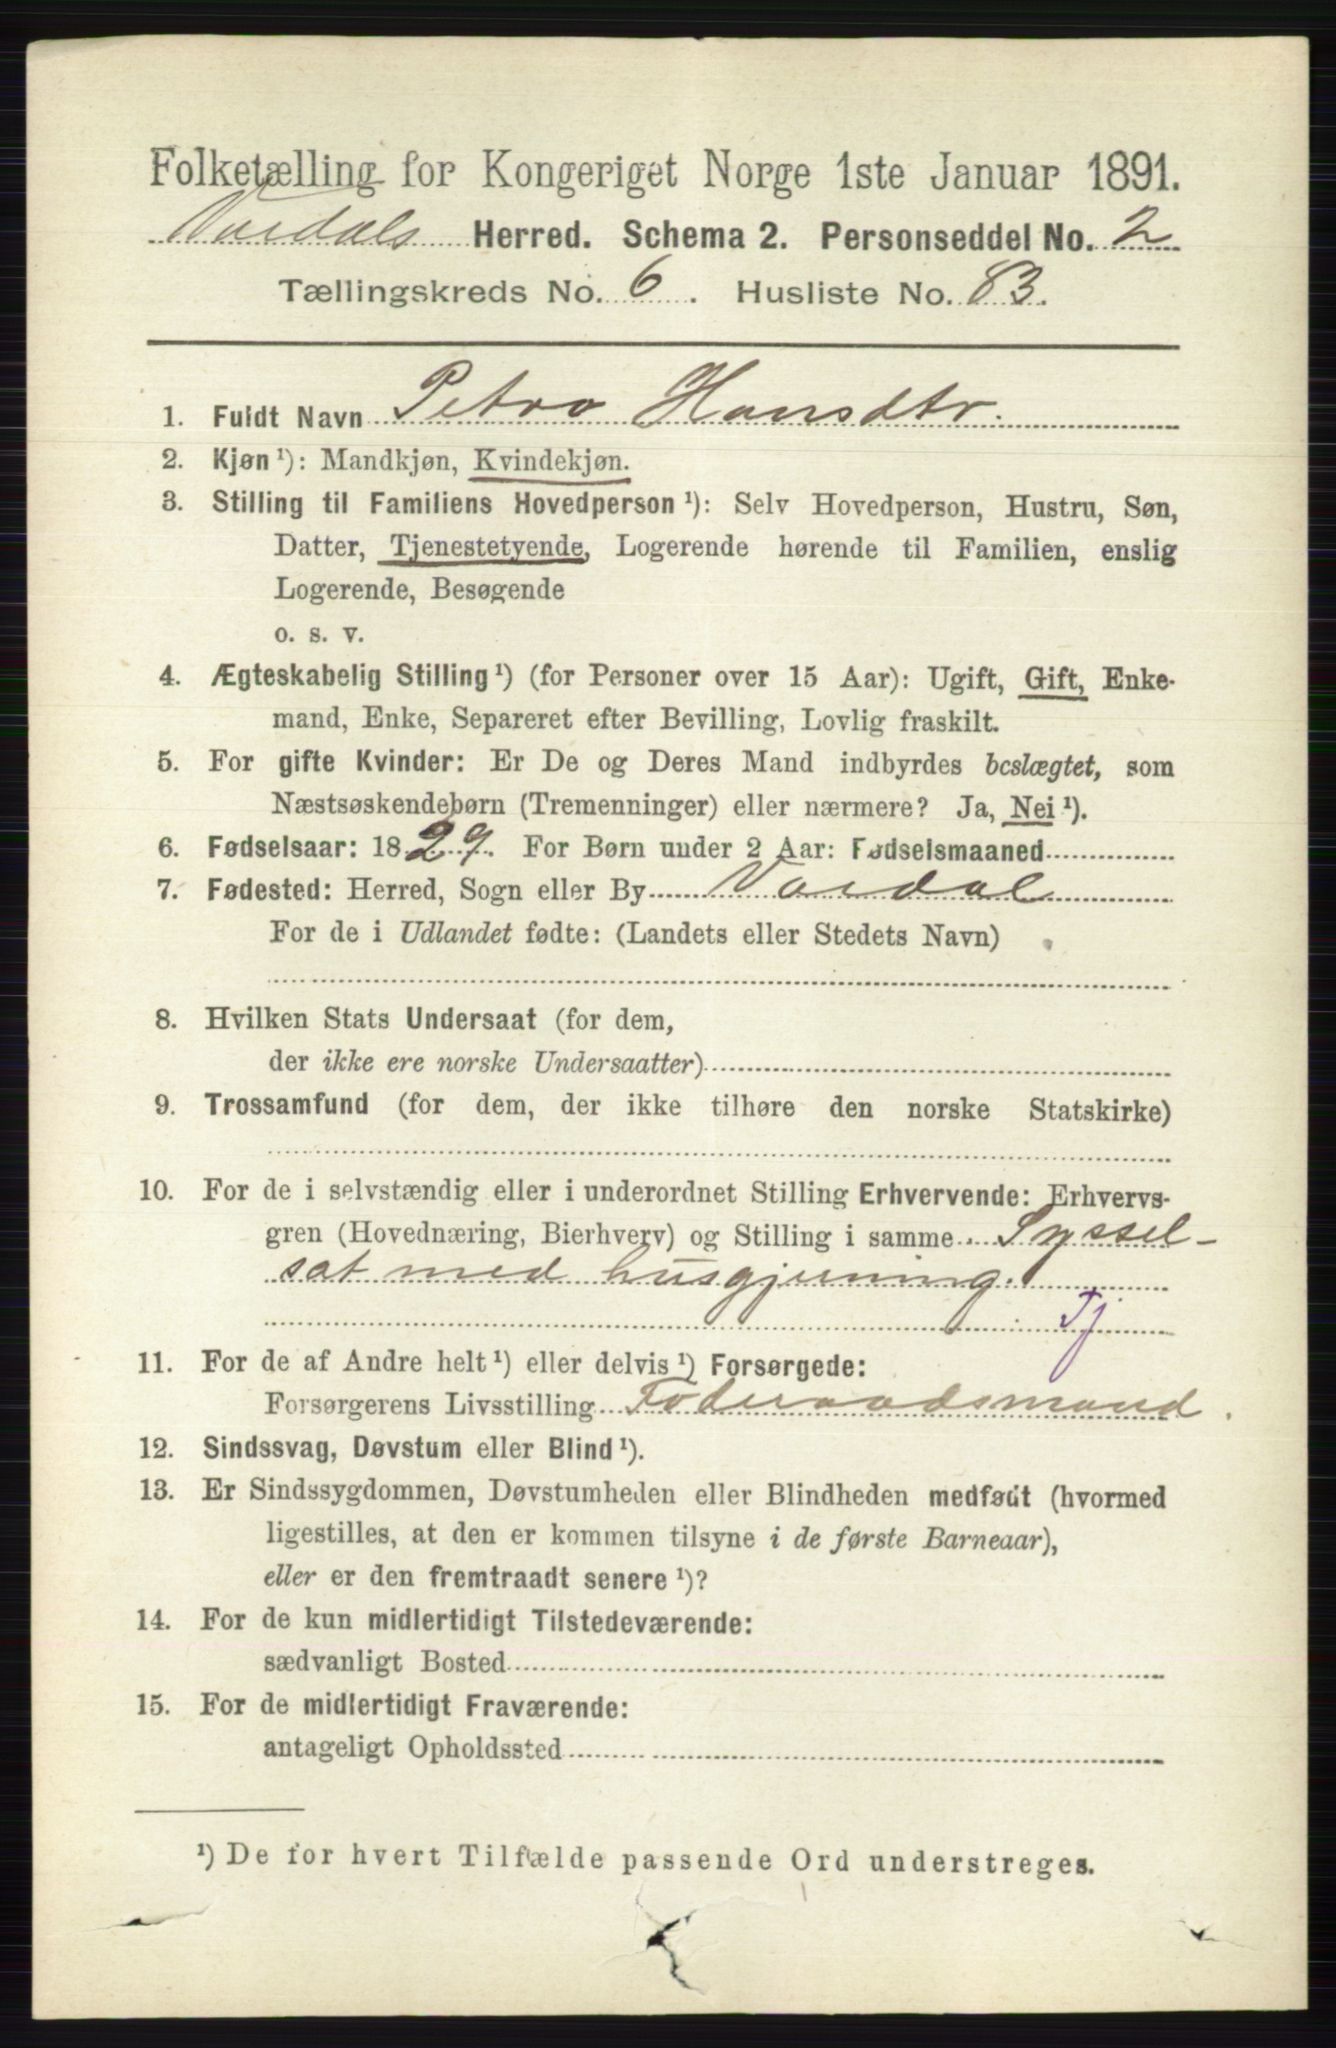 Folketælling for Kongeriget Norge 1ste Januar 1891.
Vardals Herred. Schema 2. Personseddel No. 2
Tællingskreds No. 6. Husliste No. 83.
1. Fuldt Navn Petra Hansdtr.
2. Kjøn ¹): Mandkjøn, Kvindekjøn.
3. Stilling til Familiens Hovedperson ¹): Selv Hovedperson, Hustru, Søn,
Datter, Tjenestetyende, Logerende hørende til Familien, enslig
Logerende, Besøgende
o. s. v.
4. Ægteskabelig Stilling ¹) (for Personer over 15 Aar): Ugift, Gift, Enke-
mand, Enke, Separeret efter Bevilling, Lovlig fraskilt.
5. For gifte Kvinder: Er De og Deres Mand indbyrdes beslægtet, som
Næstsøskendebørn (Tremenninger) eller nærmere? Ja, Nei ¹).
6. Fødselsaar: 1829. For Børn under 2 Aar: Fødselsmaaned
7. Fødested: Herred, Sogn eller By Vardal
For de i Udlandet fødte: (Landets eller Stedets Navn)
8. Hvilken Stats Undersaat (for dem,
der ikke ere norske Undersaatter)
9. Trossamfund (for dem, der ikke tilhøre den norske Statskirke)
10. For de i selvstændig eller i underordnet Stilling Erhvervende: Erhvervs-
gren (Hovednæring, Bierhverv) og Stilling i samme Syssel-
sat med husgjerning.
Tj
11. For de af Andre helt ¹) eller delvis ¹) Forsørgede:
Forsørgerens Livsstilling Føderaadsmand.
12. Sindssvag, Døvstum eller Blind ¹).
13. Er Sindssygdommen, Døvstumheden eller Blindheden medfødt (hvormed
ligestilles, at den er kommen tilsyne i de første Barneaar),
eller er den fremtraadt senere ¹)?
14. For de kun midlertidigt Tilstedeværende:
sædvanligt Bosted
15. For de midlertidigt Fraværende:
antageligt Opholdssted
¹) De for hvert Tilfælde passende Ord understreges.